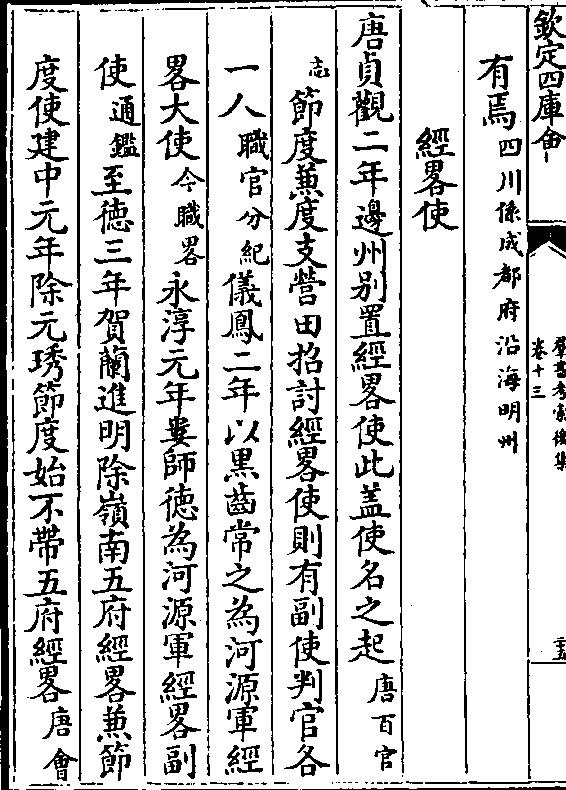 欽定四庫全
群書考索後集
卷十三
有焉四川係成都府沿海明州
經畧使
唐貞觀二年邊州别置經畧使此盖使名之起唐百官
志節度兼度支營田招討經畧使則有副使判官各
一人職官分紀儀鳳二年以黒齒常之為河源軍經
畧大使今職畧永淳元年婁師徳為河源軍經畧副
使通鑑至徳三年賀蘭進明除嶺南五府經畧兼節
度使建中元年除元琇節度始不帶五府經畧唐會